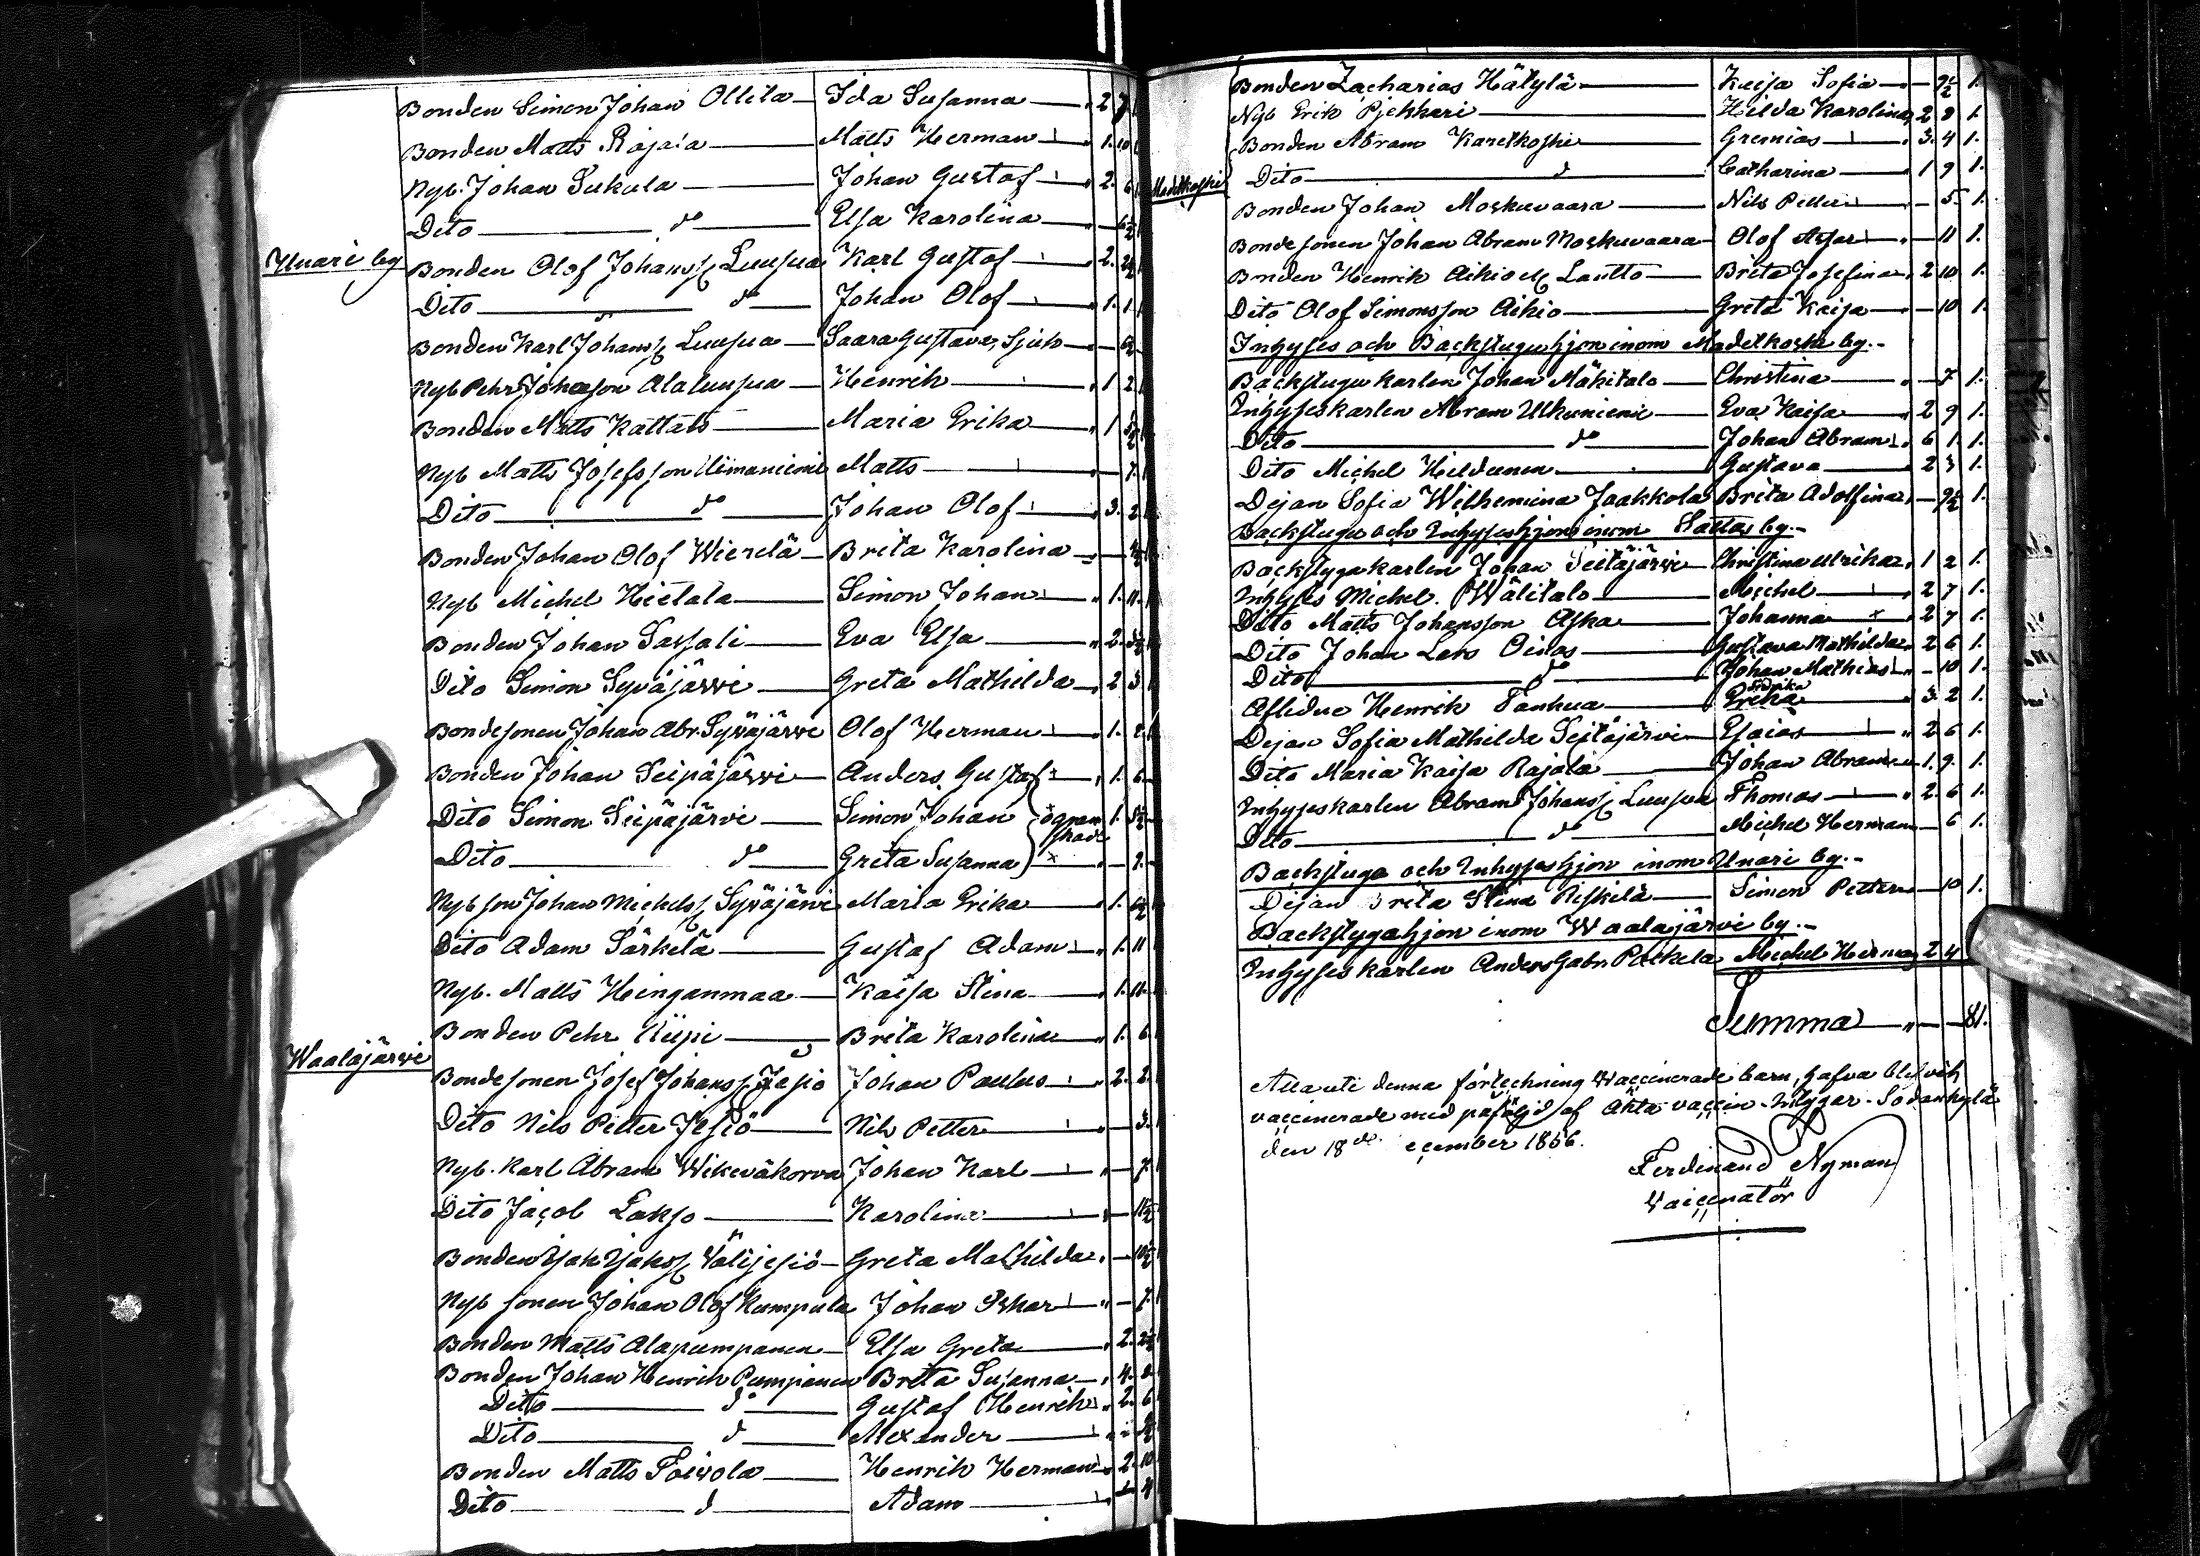 Bonden Simon Johan Ollila — Ida Susanna — " 2 7 1
Bonden Matts Rajala — Matts Herman — " 1. 10 1
Nyb. Johan Sukula — Johan Gustaf — " 2. 6 1
Dito — do — Elsa Karolina — " — 6½ 1
Unari by
Bonden Olof Johanss. Luusua Karl Gustaf — " 2. 2½ 1
Dito — do — Johan Olof — " 1. 1. 1
Bonden Karl Johanss. Luusua — Saara Gustava, Sjuk — " —
Nyb Pehr Johansson Alaluusua — Henrik — " 1 2. 1
Bonden Matts Kattats — Maria Erika — " 1
Nyb Matts Josefsson Matts — " — 7. 1
Dito — do — Johan Olof — " 3. 2
Bonden Johan Olof Wierelä — Brita Karolina — " —
Nyb Michel Hietala — Simon Johan — " 1. 11. 1
Bonden Johan Sassali — Eva Elsa — " 2.
Dito Simon Syväjärvi — Greta Mathilda — " 2 3
Bondesonen Johan Abr. Syväjärvi Olof Herman — " 1. 2. 1
Bonden Johan Seipäjärvi — Anders Gustaf × " 1. 6 —
Dito Simon Seipäjärvi — Simon Johan × 1.
Dito — do — Greta Susanna × " — 9. —
Nyb son Johan Michelss. Syväjärvi Maria Erika — " 1.
Dito Adam Särkelä — Gustaf Adam — " 1. 11
Nyb. Matts Hinganmaa — Kaisa Stina — " 1. 11.
Bonden Pehr Riipi — Brita Karolina — " 1. 6
Waalajärvi
Bondesonen Josef Johanss. Jesiö Johan Paulus — " 2. 2.
Dito Nils Petter Jesiö — Nils Petter — " — 3.
Nyb. Karl Abram Wikeväkorva Johan Karl — " — 7.
Dito Jacob Lakso — Karolina — " — 11½
Bonden Isak Isakss. Välijesiö — Greta Mathilda " — 10½
Nyb sonen Johan Olof Kumpula Johan Oskar — " — 7.
Bonden Matts Alapumpanen — Elsa Greta — " 2. 2½
Bonden Johan Henrik Pumpanen Brita Susanna — " 4. 8.
Dito — do — Gustaf Henrik " 2. 6
Dito — d — Alexander — "
Bonden Matts Toivola — Henrik Herman " 2. 10
Dito — d Adam — " — 4
Bonden Zacharias Hätylä — Kaisa Sofia — " — 9½ 1.
Nyb Erik Pjekkari — Hilda Karolina, 2 8 1.
Bonden Abram Karetkoski — Gremias — " 3. 4 1.
Madetkoski
Dito — d — Catharina — " 1 9 1.
Bonden Johan Moskuvaara — Nils Petter — " — 5. 1.
Bondesonen Johan Abram Moskuvaara — Olof Askar — " — 11 1.
Bonden Henrik Aikio el. Lautto — Brita Josefina " 2 10 1.
Dito Olof Simonsson Aikio — Greta Kaisa — " — 10 1.
Inhyses och Backstuguhjon inom Madetkoski by.-
Backstugu karlen Johan Mäkitalo — Christina — " — 7 1.
Inhyseskarlen Abram Ukunieni — Eva Kaisa — " 2 9 1.
Dito — do — Johan Abram " 6 1 1.
Dito Michel Hildunen — Gustava — 2 3 1.
Dejan Sofia Wilhemina Jaakkola Brita Adolfina " — 9½ 1.
Backstugu och Inhyseshjon inom Sattas by.-
Backstyga karlen Johan Seitäjärvi — Christina Ulrika " 1 2 1.
Inhyses Michel. Wälitalo — Michel — " 2 7 1.
Dito Matts Johansson Aska — Johanna × " 2 7 1.
Dito Johan Lars Oinas — Gustava Mathilda " 2 6 1.
Dito — do — Johan Mathias " — 10 1.
Aflidne Henrik Tanhua — Fredrika Erika — " 3. 2 1.
Dejan Sofia Mathilda Seitäjärvi — Esaias — " 2 6 1.
Dito Maria Kaisa Rajala — Johan Abram " 1. 9. 1.
Inhyseskarlen Abram Johanss. Luusua Thomas — " 2. 6 1.
Dito — do — Michel Herman — 6 1.
Backstugo och Inhyseshjon inom Unari by.-
Dejan Brita Stina Riskilä — Simon Petter — 10 1.
Backstygahjon inom Waalajärvi by.-
Inhyses karlen Anders Gabr. Palkela Michel Herman 2 4
Summa — " — — 81.
Alla uti denna förteckning Waccinerade barn, hafva blifvit
vaccinerade med påföljd af äkta vaccin. Intygar. Sodankylä
den 18de December 1856.
Ferdinand Nyman
Vaccinatör